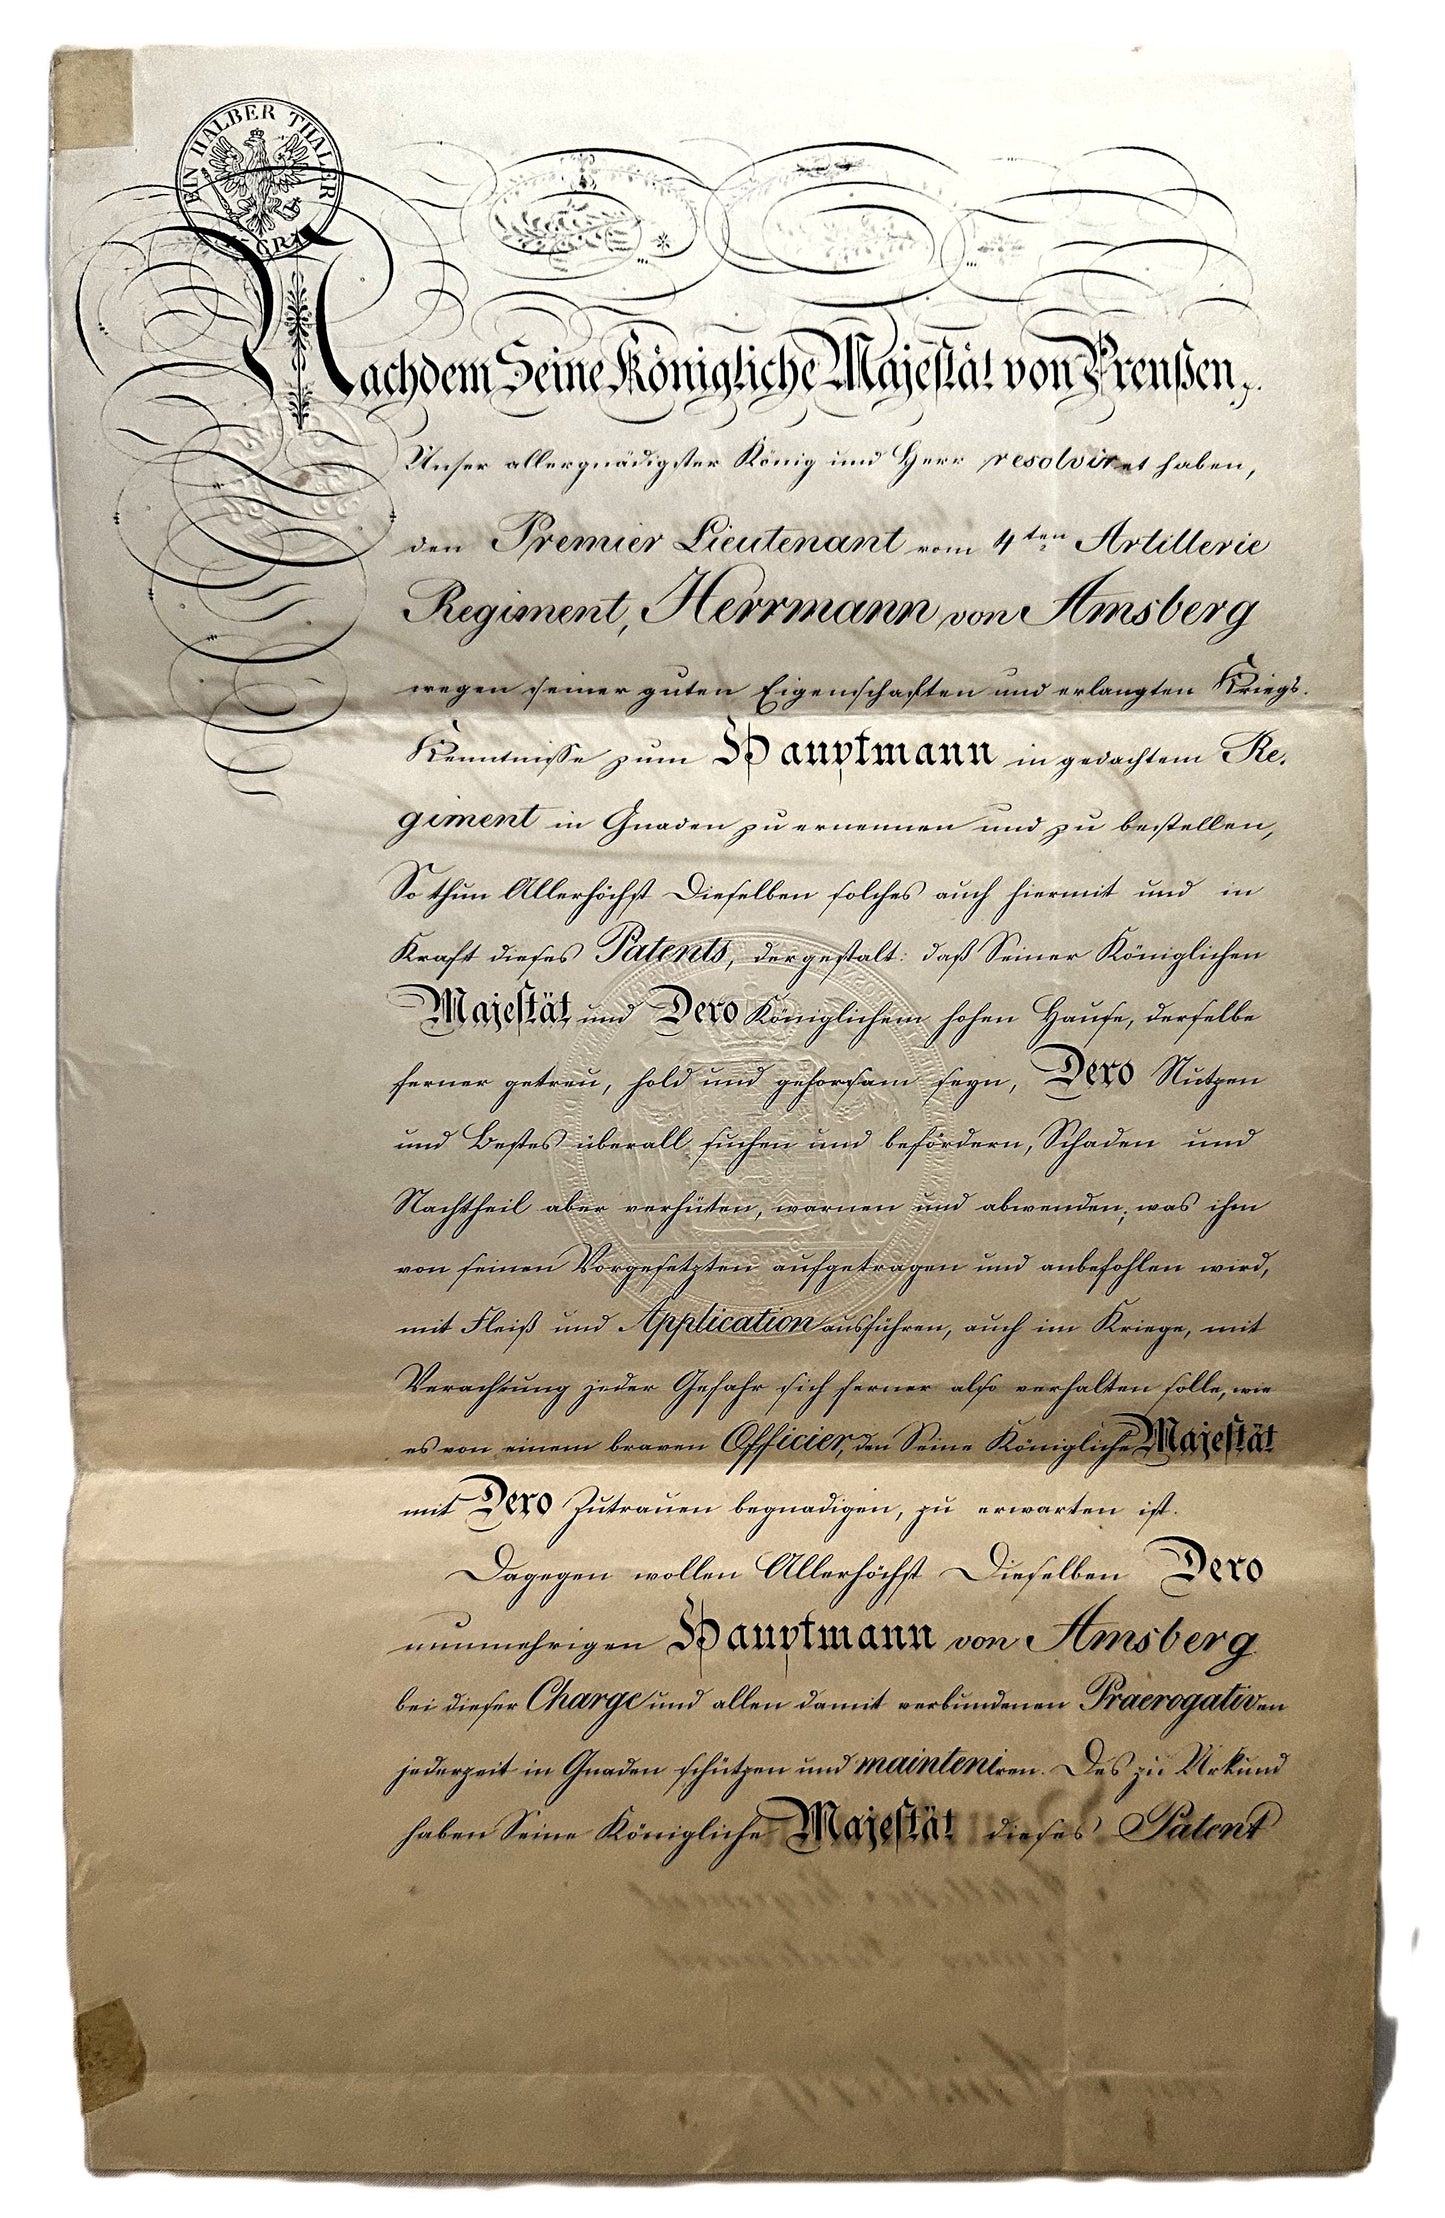 EIN HALBER THALER
15 SGR.
Nachdem Seine Königliche Majestät von Preußen,
Unser allergnädigster König und Herr resolviret haben,
den Premier Lieutenant vom 4ten Artillerie
Regiment, Herrmann von Amsberg
wegen seiner guten Eigenschaften und erlangten Kriegs-
Kenntnisse zum Hauptmann in gedachtem Re-
giment in Gnaden zu ernennen und zu bestellen,
So thun Allerhöchst Dieselben solches auch hiermit und in
Kraft dieses Patents, dergestalt: daß Seiner Königlichen
Majestät und Dero Königlichem hohen Hause, derselbe
ferner getreu, hold und gehorsam seyn, Dero Nutzen
und Bestes überall suchen und befördern, Schaden und
Nachtheil aber verhüten, warnen und abwenden; was ihm
von seinen Vorgesetzten aufgetragen und anbefohlen wird,
mit Fleiß und Application ausführen, auch im Kriege, mit
Verachtung jeder Gefahr sich ferner also verhalten solle, wie
es von einem braven Officier, den Seine Königliche Majestät
mit Dero Zutrauen begnadigen, zu erwarten ist.
Dagegen wollen Allerhöchst Dieselben Dero
nunmehrigen Hauptmann von Amsberg
bei dieser Charge und allen damit verbundenen Praerogativen
jederzeit in Gnaden schützen und mainteniren. Des zu Urkund
haben Seine Königliche Majestät dieses Patent